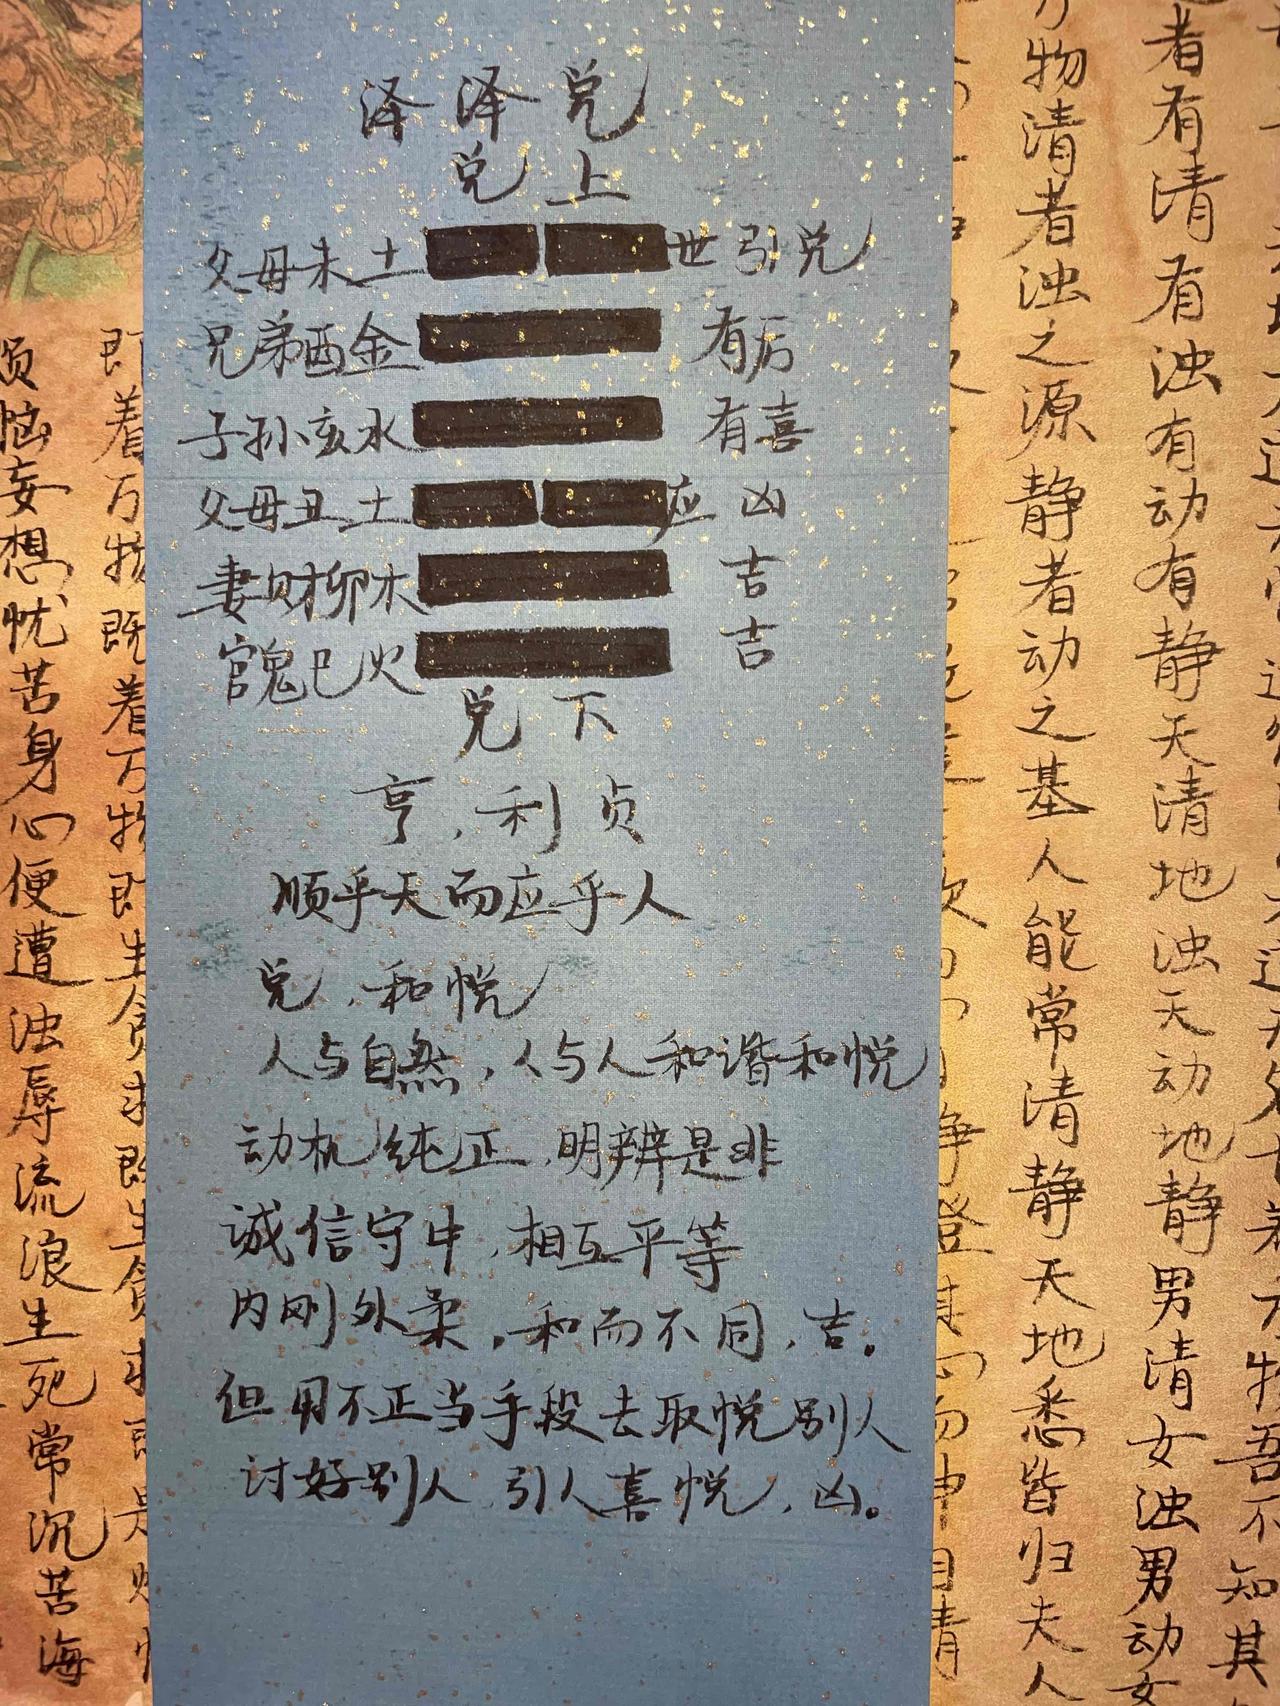 泽泽兑
兑上
父母未土 世引兑
兄弟酉金 有厉
子孙亥水 有喜
父母丑土 应 凶
妻财卯木 吉
官鬼巳火 吉
兑下
亨,利贞
顺乎天而应乎人
兑,和悦
人与自然,人与人和谐和悦
动机纯正,明辨是非
诚信守中,相互平等
内刚外柔,和而不同,吉。
但用不正当手段去取悦别人
讨好别人,引人喜悦,凶。
吾不知其
者有清有浊有动有静天清地浊天动地静男清女浊男动女
万物清者浊之源静者动之基人能常清静天地悉皆归夫人
即着万物既着万物即生贪求既生贪求即是烦
烦恼妄想忧苦身心便遭浊辱流浪生死常沉苦海